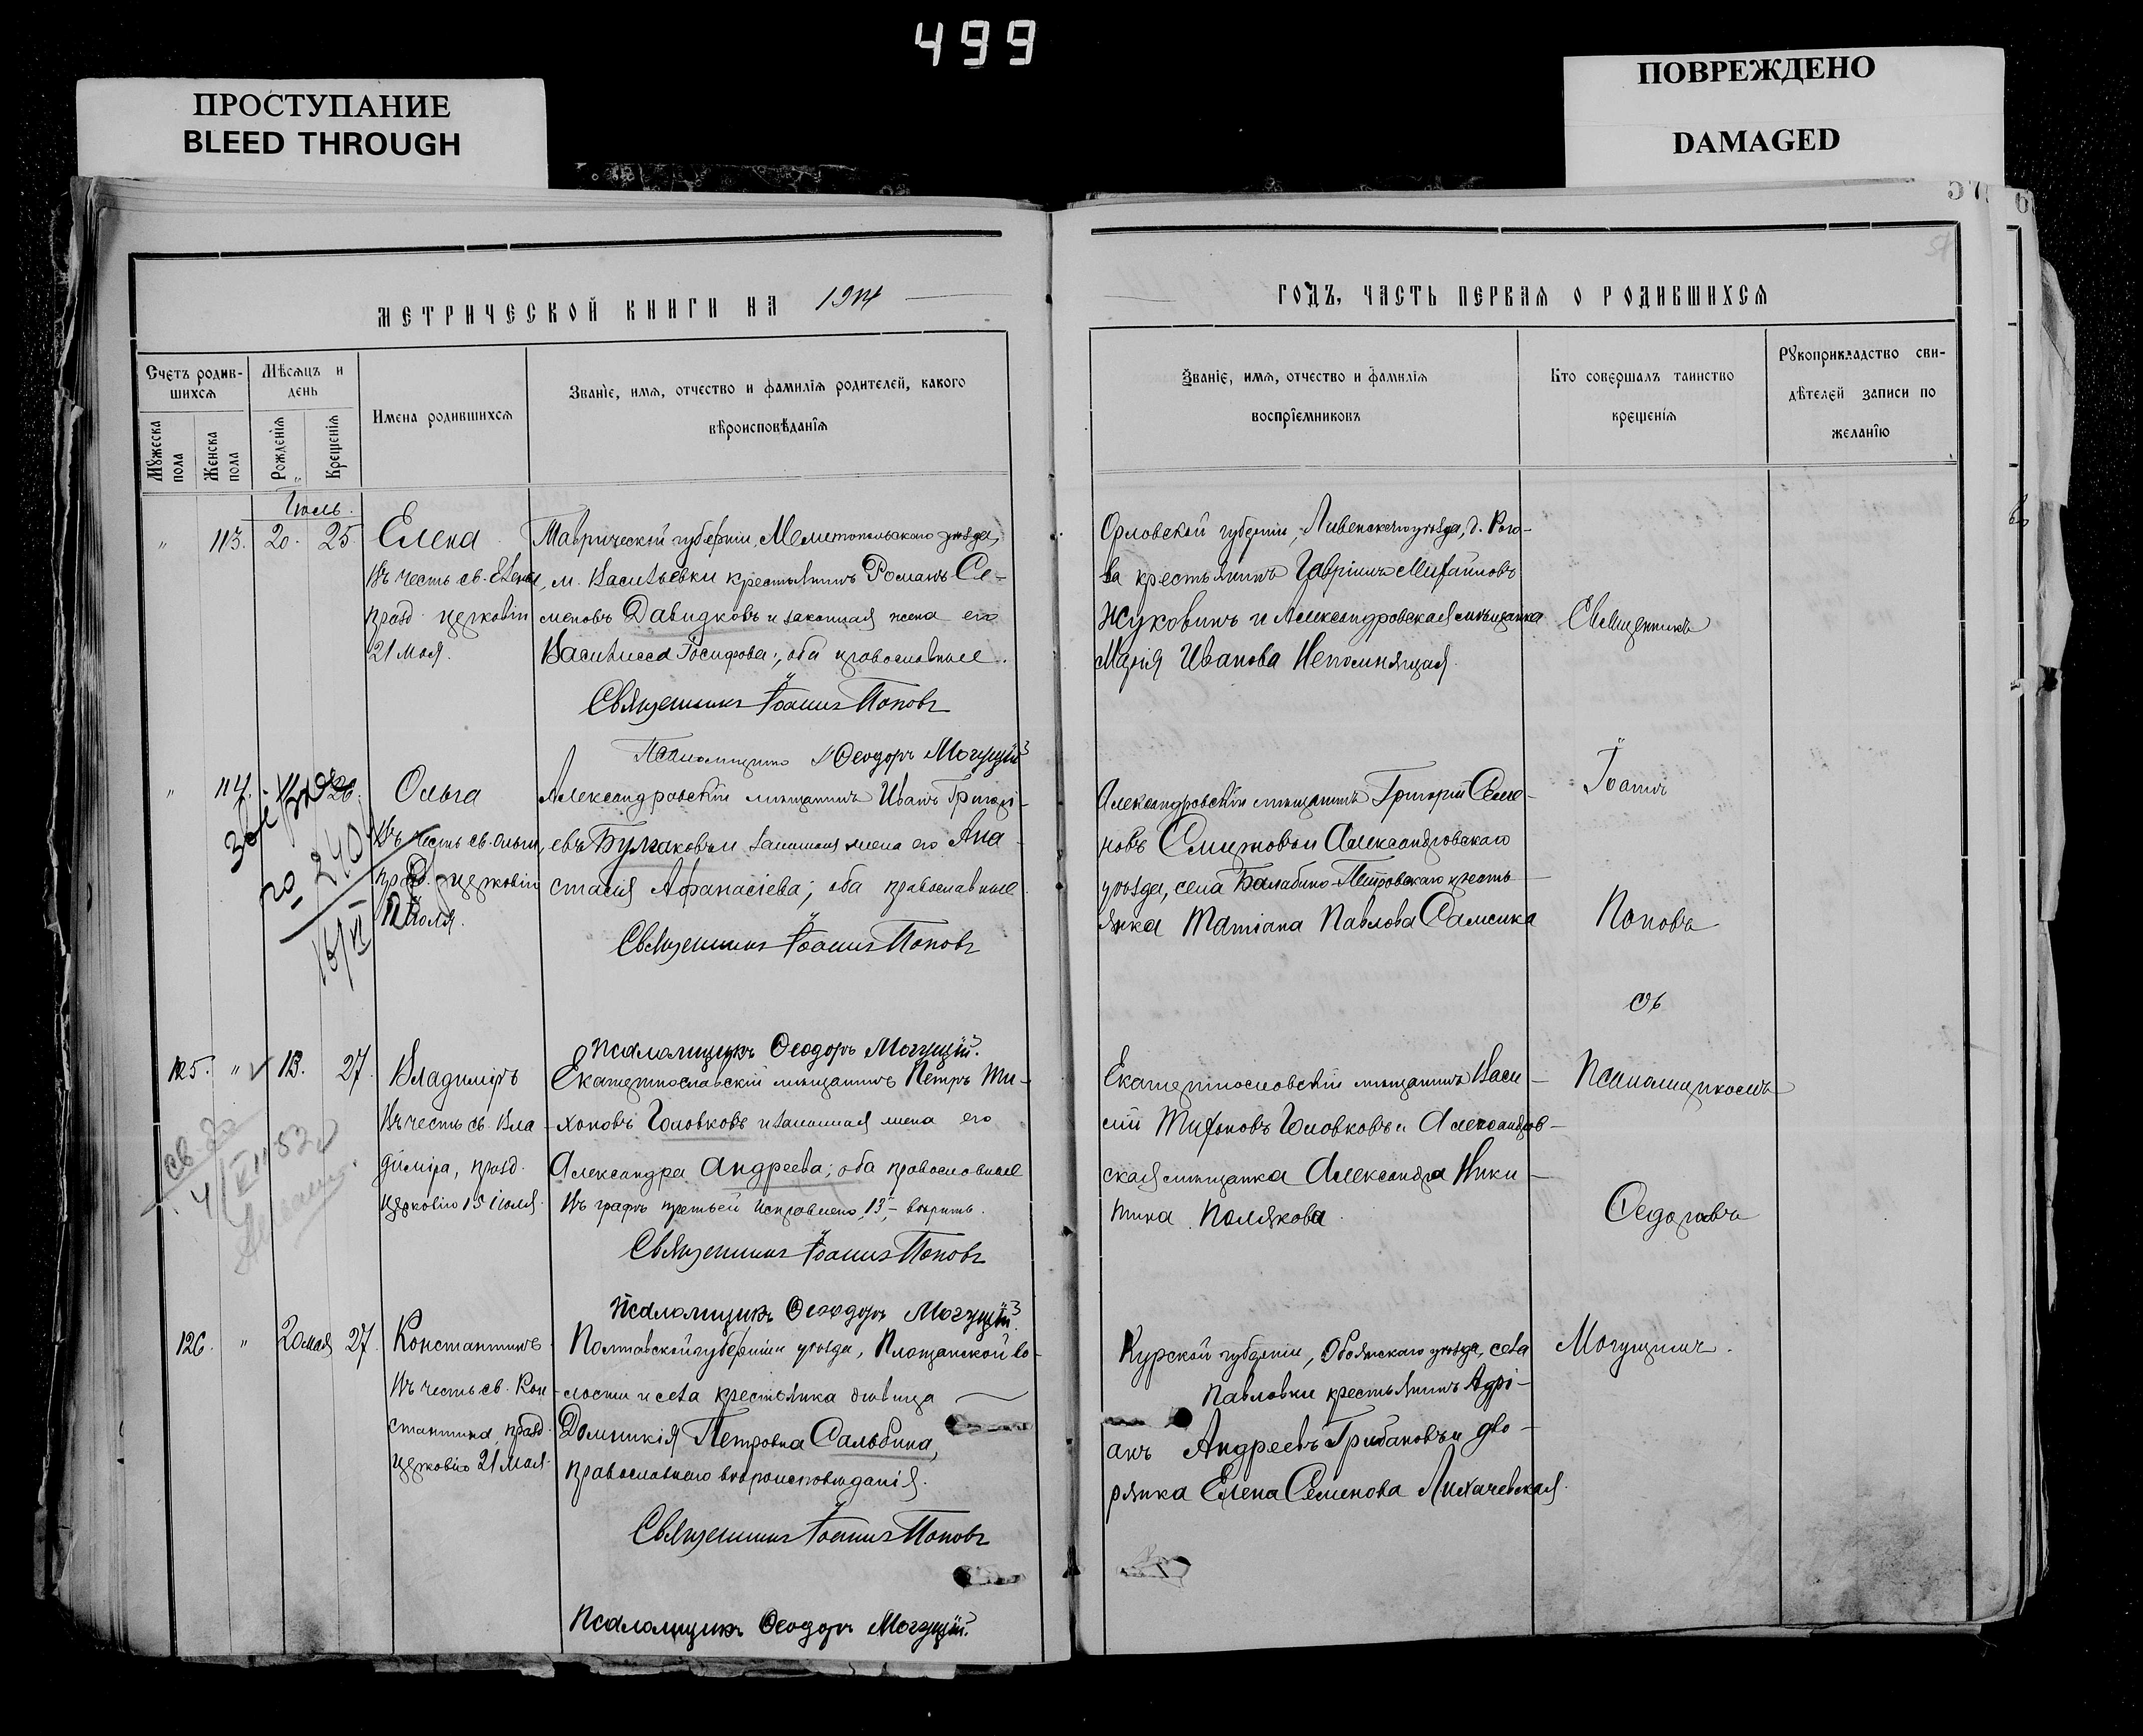 499
ПРОСТУПАНИЕ
BLEED THROUGH
ПОВРЕЖДЕНО
DAMAGED
МЕТРИЧЕСКОЙ КНИГИ НА 1914
Счетъ родив-
шихся
Мѣсяцъ и
день
Мужеска
пола
Женска
пола
Рожденія
Крещенія
Имена родившихся
Званіе, имя, отчество и фамилія родителей, какого
вѣроисповѣданія
Іюль.
" 113. 20. 25.
Елена
Въ честь св. Елены,
празд. церковію
21 мая.
Таврической губерніи, Мелитопольскаго уѣзда,
м. Васильевки крестьянинъ Романъ Се-
меновъ Давидковъ и законная жена его
Василисса Іосифова; оба православные.
Священникъ Іоаннъ Поповъ
Псаломщикъ Ѳеодоръ Могущій
" 114.
Ольга
Въ честь св. Ольги,
празд. церковію
11 Іюля.
Александровскій мѣщанинъ Иванъ Григорі-
евъ Булгаковъ и законная жена его Ана-
стасія Афанасіева; оба православные.
Священникъ Іоаннъ Поповъ
Псаломщикъ Ѳеодоръ Могущій.
125. " 13. 27.
Владиміръ
Въ честь св. Вла-
диміра, празд.
церковію 15 Іюля.
Екатеринославскій мѣщанинъ Петръ Ти-
хоновъ Головковъ и законная жена его
Александра Андреева; оба православные
Въ графѣ третьей исправлено "13" – вѣрить.
Священникъ Іоаннъ Поповъ
Псаломщикъ Ѳеодоръ Могущій.
126. " 20 мая 27.
Константинъ
Въ честь св. Кон-
стантина, празд.
церковію 21 мая.
Полтавской губерніи и уѣзда, Площанской во-
лости и села крестьянка дѣвица
Домникія Петровна Сальбина,
православнаго вѣроисповѣданія.
Священникъ Іоаннъ Поповъ
Псаломщикъ Ѳеодоръ Могущій.
ГОДЪ, ЧАСТЬ ПЕРВАЯ О РОДИВШИХСЯ
Званіе, имя, отчество и фамилія
воспріемниковъ
Кто совершалъ таинство
крещенія
Рукоприкладство сви-
дѣтелей записи по
желанію
Орловской губерніи, Ливенскаго уѣзда, д. Рого-
ва крестьянинъ Гавріилъ Михайловъ
Жуковинъ и Александровская мѣщанка
Марія Иванова Непомнящая.
Александровскій мѣщанинъ Григорій Семе-
новъ и Александровскаго
уѣзда, села Балабино-Петровскаго кресть-
янка Татіана Павлова Самсика
Екатеринославскій мѣщанинъ Васи-
лій Тихоновъ Головковъ и Александров-
ская мѣщанка Александра Ники-
тина Полякова.
Курской губерніи, Обоянскаго уѣзда, села
Павловки крестьянинъ Адрі-
анъ Андреевъ Грибановъ и дво-
рянка Елена Семенова Лихачевская.
Священникъ
Іоаннъ
Поповъ
съ
Псаломщикомъ
Ѳедоромъ
Могущимъ.